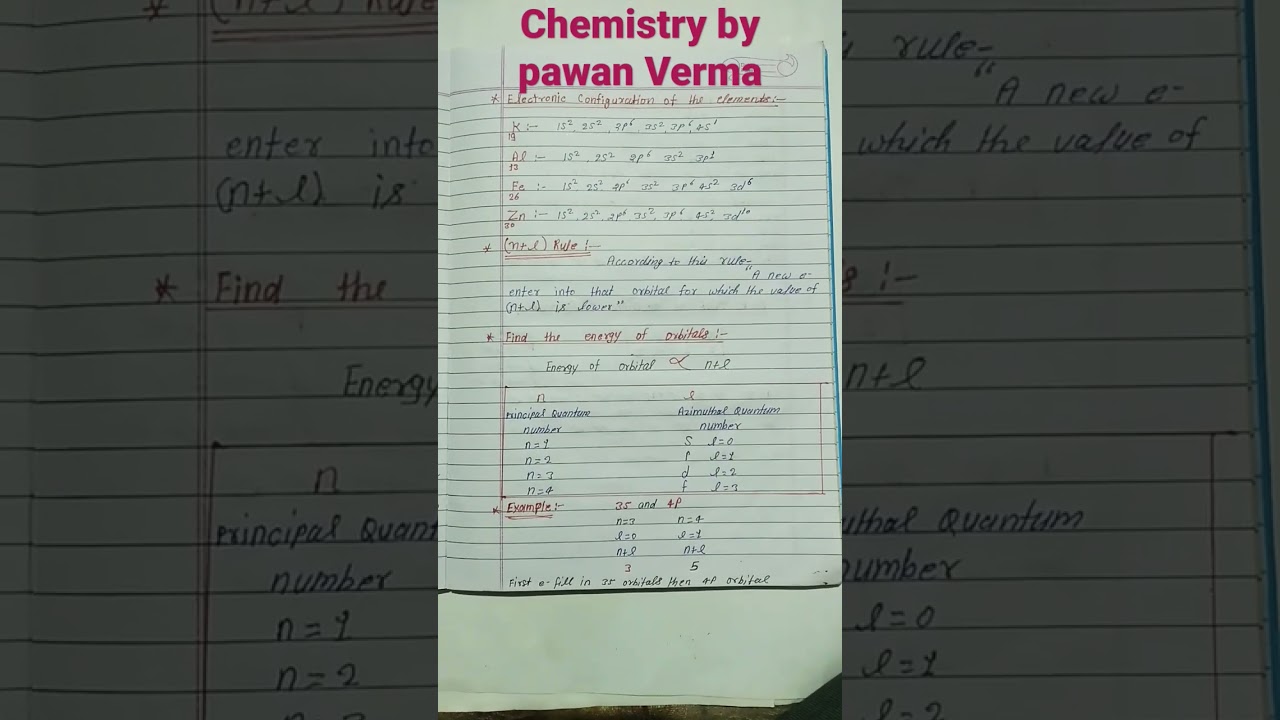 Chemistry by
pawan Verma
* Electronic Configuration of the elements:-
K :- 1s², 2s², 2p⁶, 3s², 3p⁶, 4s¹
19
Al :- 1s², 2s² 2p⁶ 3s² 3p¹
13
Fe :- 1s² 2s² 2p⁶ 3s² 3p⁶ 4s² 3d⁶
26
Zn :- 1s², 2s², 2p⁶ 3s², 3p⁶, 4s², 3d¹⁰
30
* (n+l) Rule :-
According to this rule-
"A new e-
enter into that orbital for which the value of
(n+l) is lower"
* Find the energy of orbitals :-
Energy of orbital ∝ n+l
n l
Principal Quantum Azimuthal Quantum
number number
n=1 S l=0
n=2 P l=1
n=3 d l=2
n=4 f l=3
* Example:- 3S and 4P
n=3 n=4
l=0 l=1
n+l n+l
3 5
First e- fill in 3S orbitals then 4P orbital
* (n+l) Rule
rule-
"A new e-
enter into which the value of
(n+l) is
* Find the :-
Energy n+l
n
Principal Quantum
number number
n=1 l=0
n=2 l=1
l=2